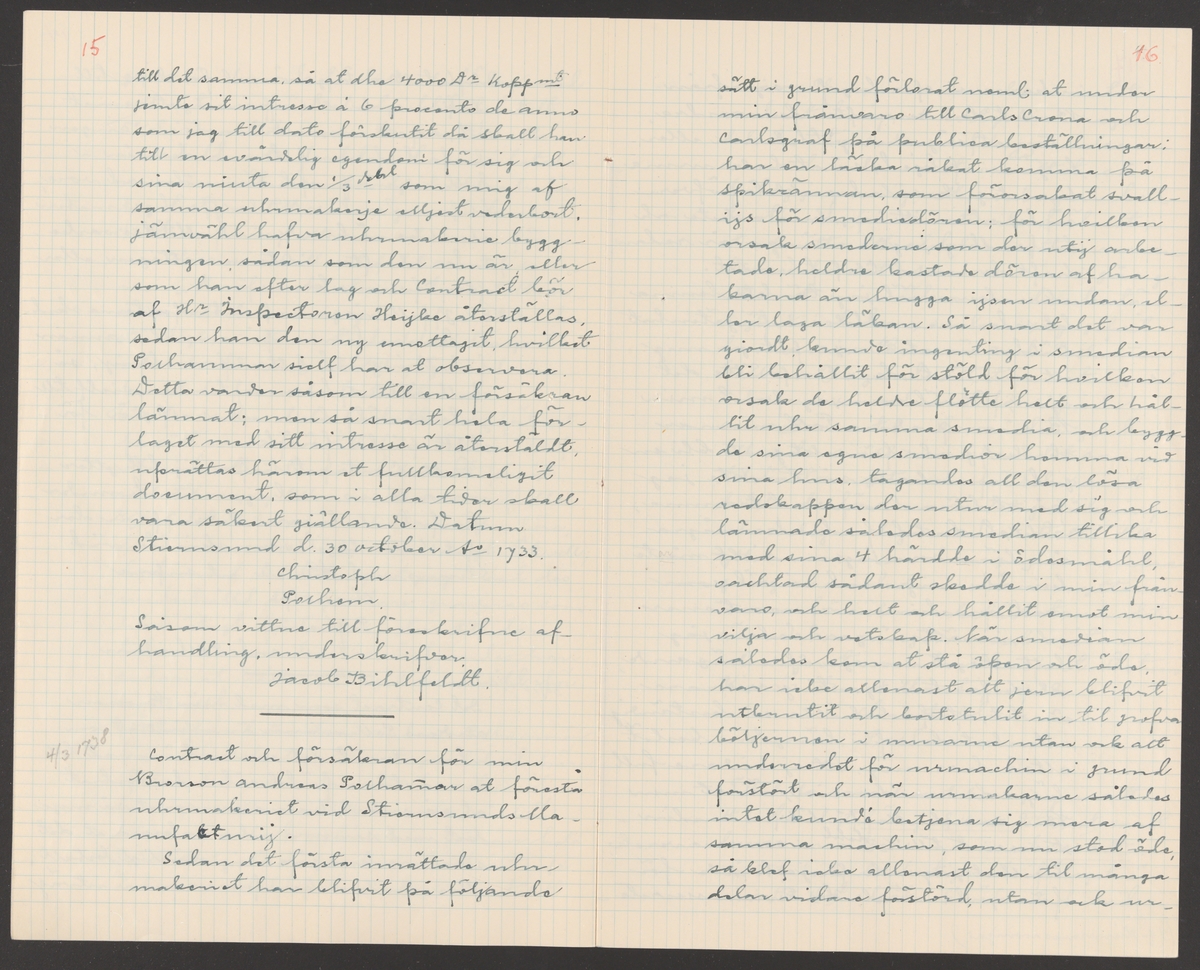 15
till det samma, så at dhe 4000 Dr Koppmt
jemte sit intresse à 6 procento de anno
som jag till dato förskutit då skall han
till en evärdelig egendom för sig och
sina niuta den 1/3 del som mig af
samma uhrmakerje eljest vederbort,
jämvähl hafva uhrmakerie bygg-
ningen, sådan som den nu är, eller
som han efter lag och Contract bör
af Hr Inspectoren Heijke återställas,
sedan han den ny emottagit, hvilket
Polhammar sielf har at observera.
Detta varder såsom till en försäkran
lämnat; men så snart hela för-
laget med sitt intresse är återstäldt,
uprättas härom et fullkomeligit
document, som i alla tider skall
vara säkert giällande. Datum
Stiernsund d. 30 october Ao 1733.
Christoph
Polhem.
Såsom vittne till föreskrifne af-
handling, underskrifver
Jacob Bihlfeldt.
4/3 1738
Contract och försäkran för min
Brorson andreas Polhamar at förestå
uhrmakeriet vid Stiernsunds Ma-
nufakturij.
Sedan det första inrättade uhr-
makeriet har blifvit på följande
46
sätt i grund förlorat neml: at under
min frånvaro till CarlsCrona och
Carlsgraf på publica beställningar;
har en läcka råkat komma på
spikrännan, som förorsakat svall-
ijs för smediedören; för hvilken
orsak smederne som der utij arbe-
tade, heldre kastade dören af ha-
karna än hugga ijsen undan, el-
ler laga läkan. Så snart det var
giordt, kunde ingenting i smedian
bli behållit för stöld för hvilken
orsak de heldre flötte helt och hål-
lit uhr samma smedia, och bygg-
de sina egne smedior hemma vid
sina hus, tagandes all den lösa
redskappen der utur med sig och
lämnade således smedian tillika
med sina 4 härdde i ödesmåhl,
oachtad sådant skedde i min från-
varo, och helt och hållit emot min
vilja och vetskap. När smedian
således kom at stå öpen och öde,
har icke allenast alt jern blifvit
utbrutit och bortstulit in til grofva
böljernen i murarne utan ock alt
underredet för urmachin i grund
förstört och när urmakarne således
intet kunde betjena sig mera af
samma machin, som nu stod öde,
så blef icke allenast den til många
delar vidare förstörd, utan ock ur-